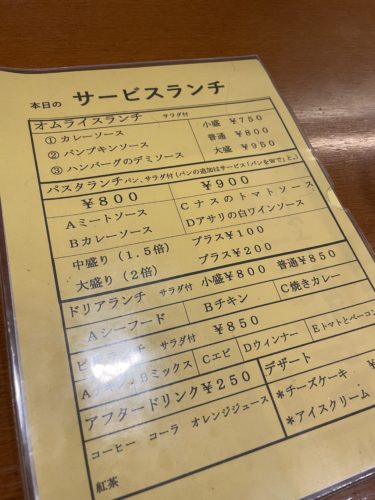 本日の サービスランチ
オムライスランチ サラダ付
① カレーソース
② パンプキンソース
③ ハンバーグのデミソース
小盛 ¥750
普通 ¥800
大盛 ¥950
パスタランチ パン、サラダ付(パンの追加はサービス
¥800
Aミートソース
Bカレーソース
¥900
Cナスのトマトソース
Dアサリの白ワインソース
中盛り(1.5倍) プラス¥100
大盛り(2倍) プラス¥200
ドリアランチ サラダ付 小盛¥800 普通¥850
Aシーフード Bチキン C焼きカレー
サラダ付 ¥850
Bミックス Cエビ Dウィンナー Eトマトとベーコン
アフタードリンク¥250
コーヒー コーラ オレンジジュース
紅茶
デザート
*チーズケーキ
*アイスクリーム